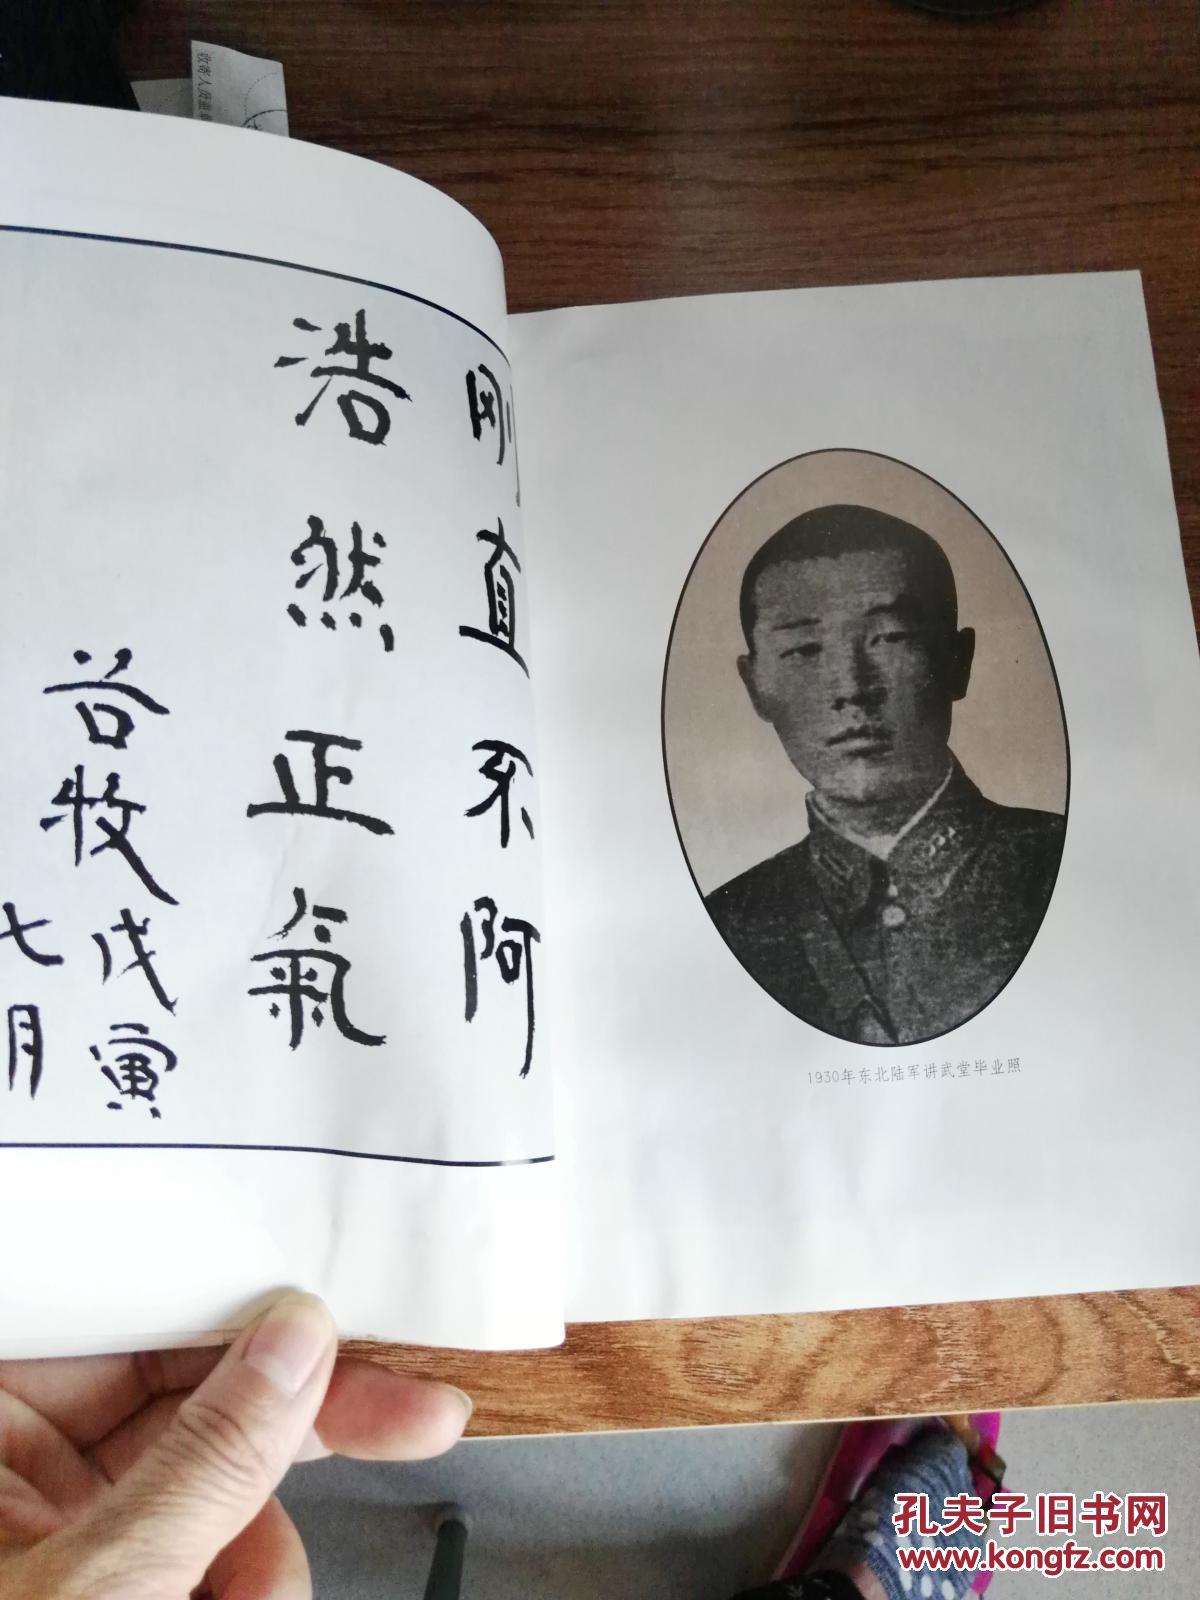 收寄人员
刚直不阿
浩然正氣
谷牧 戊寅
七月
1930年东北陆军讲武堂毕业照
孔夫子旧书网
www.kongfz.com